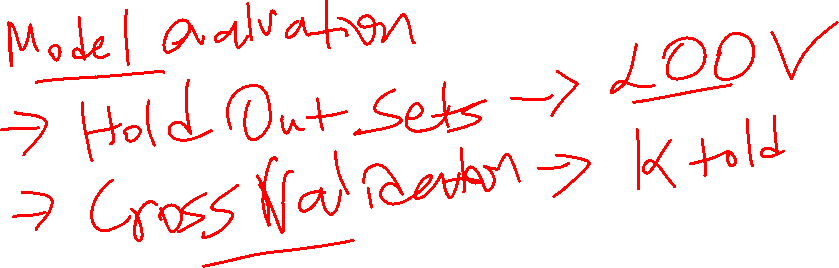 Model evalvation
→ Hold Out Sets → LOOV
→ Cross Validation → K fold